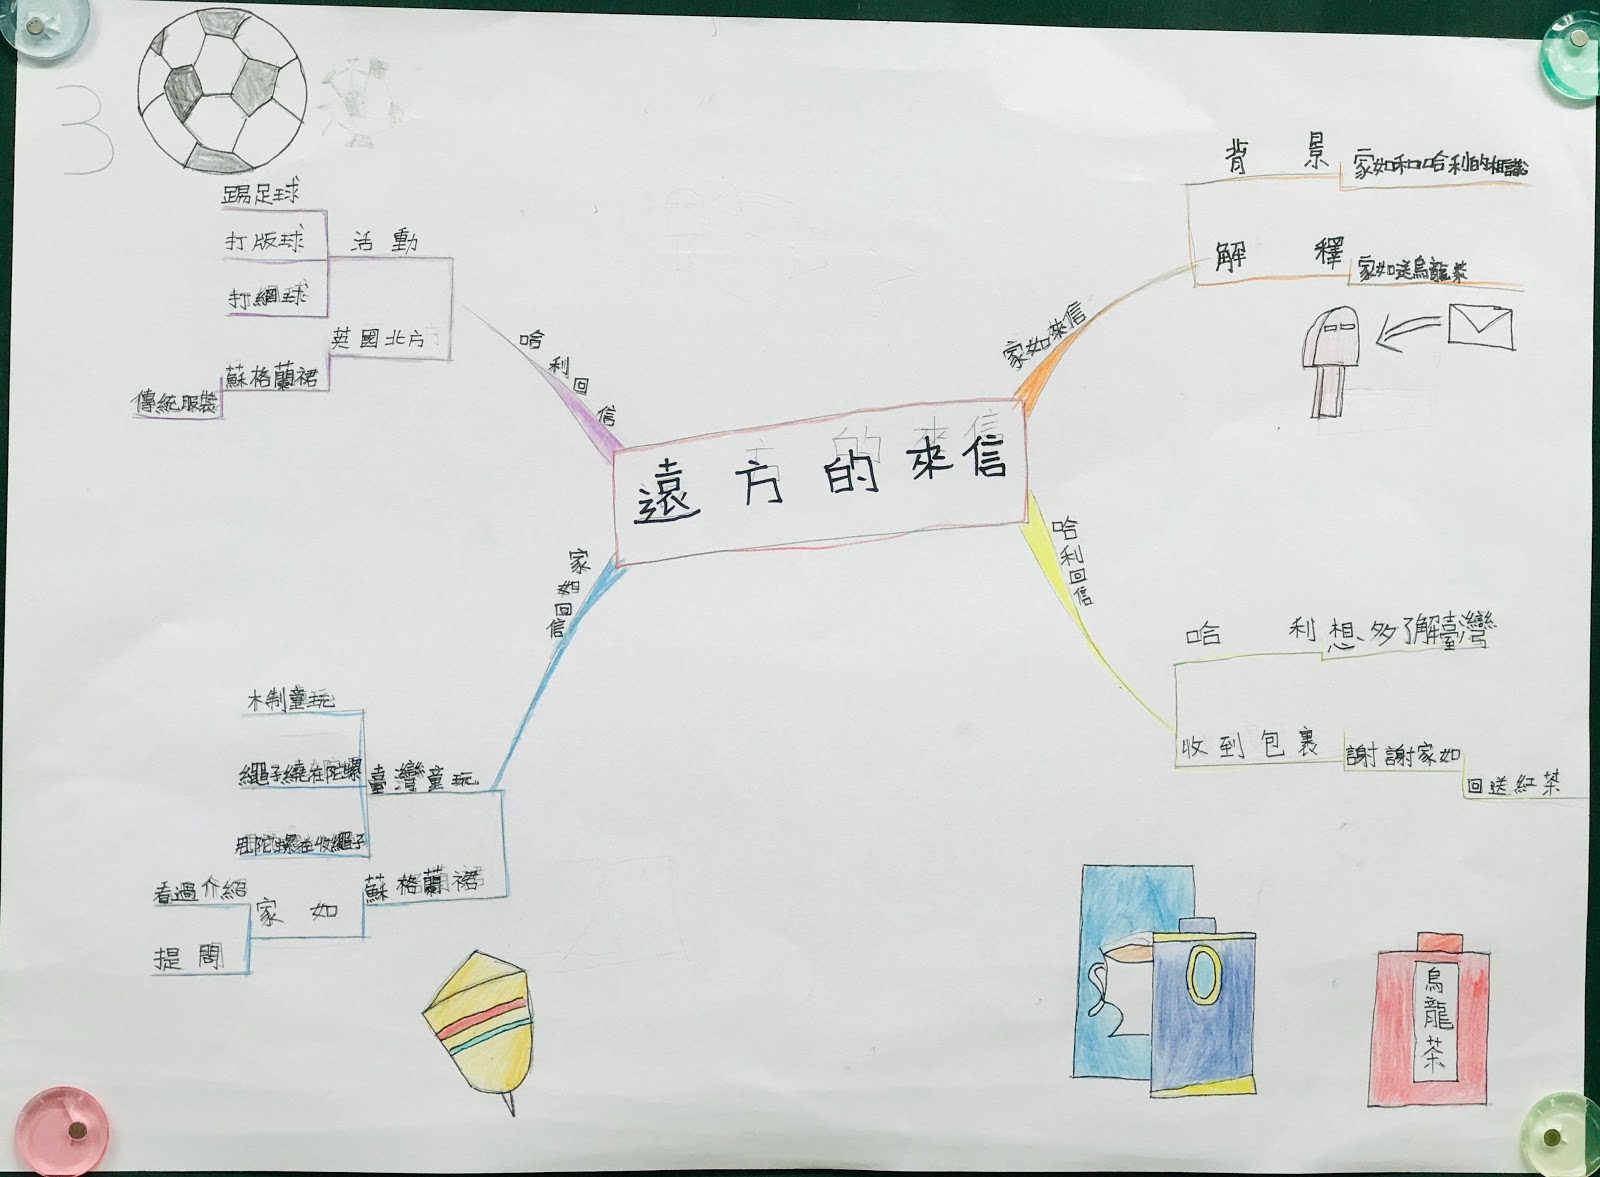 3
遠方的來信
家如來信
背景
家如和哈利的相識
解釋
家如送烏龍茶
哈利回信
哈利
想多了解臺灣
收到包裹
謝謝家如
回送紅茶
家如回信
臺灣童玩
木制童玩
繩子繞在陀螺
甩陀螺在收繩子
蘇格蘭裙
家如
看過介紹
提問
哈利回信
活動
踢足球
打版球
打網球
英國北方
蘇格蘭裙
傳統服裝
烏龍茶